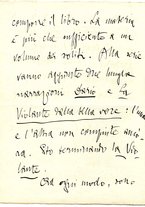 compone il libro. La materia
è più che sufficiente a un
volume dei soliti. Alla serie
vanno aggiunte due lunghe
narrazioni Dario e la
Violante dalla bella voce: l'una
e l'altra non compiute anco-
ra. Sto terminando la Vio-
lante.
Ad ogni modo, sono